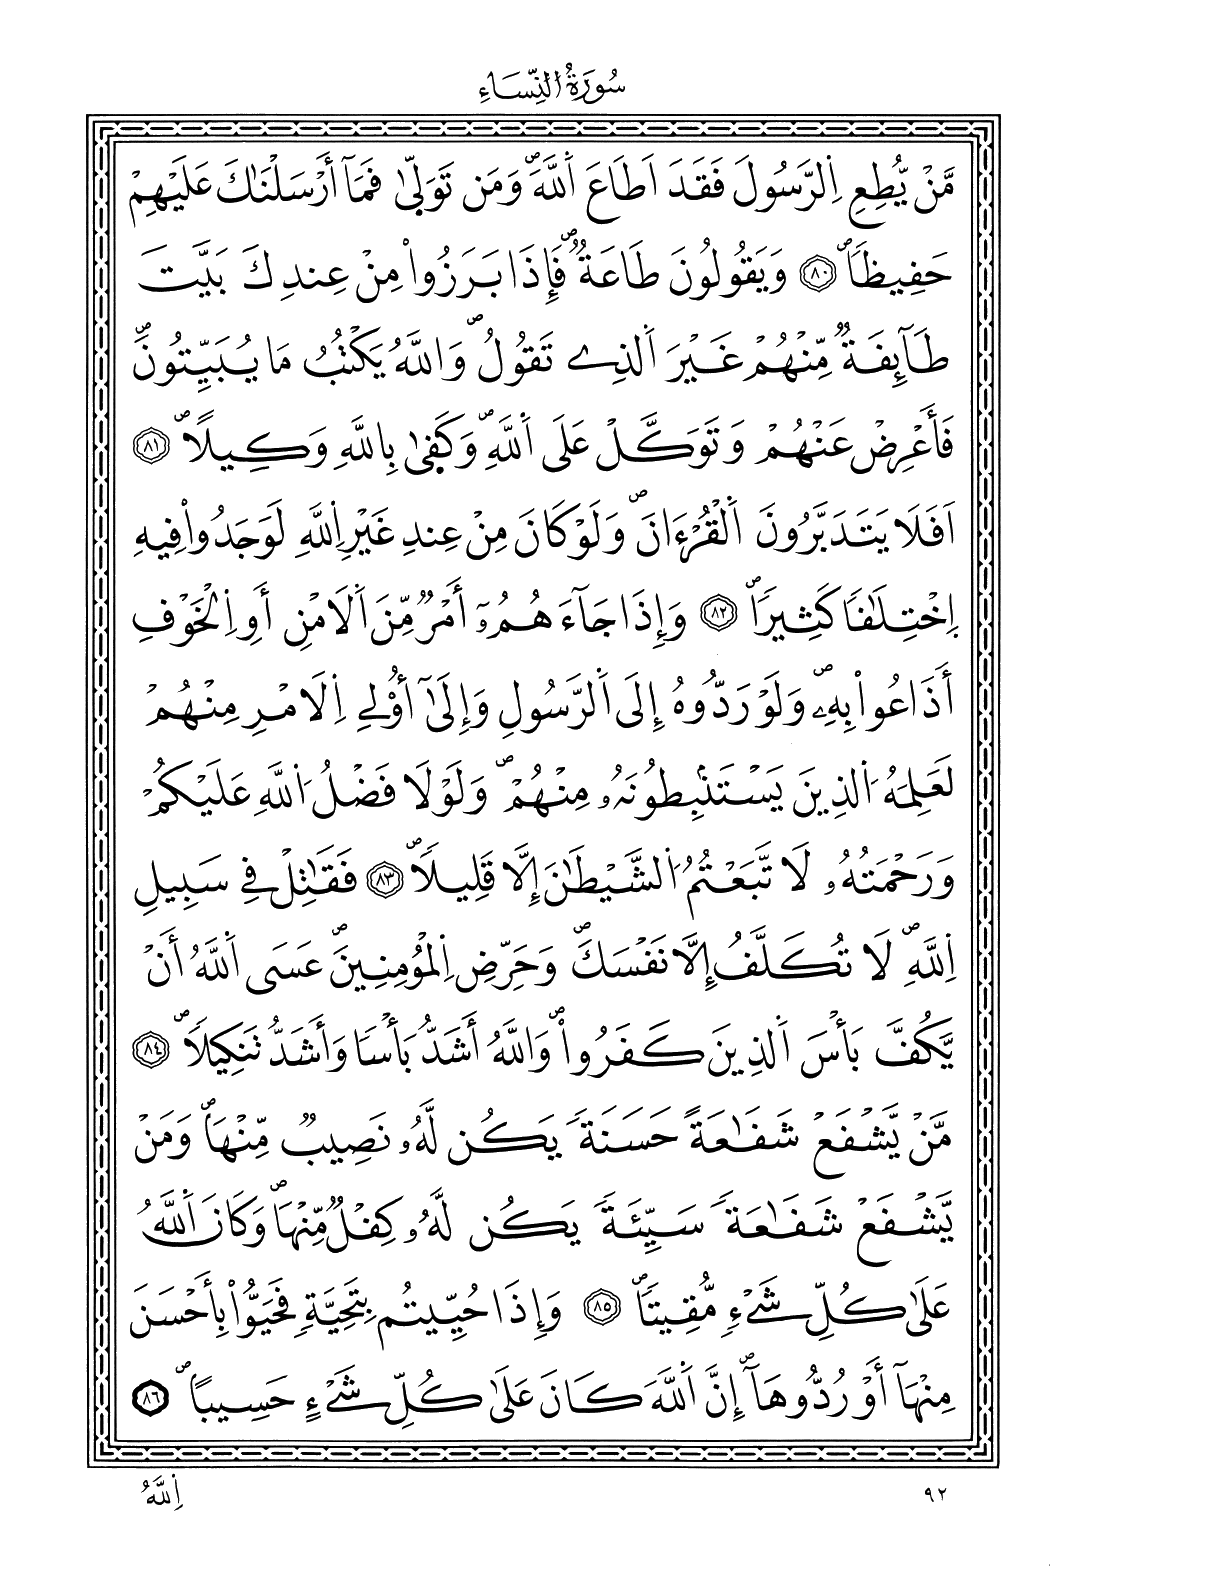 سُورَةُ النِّسَاءِ
مَّنْ يُّطِعِ اِ۬لرَّسُولَ فَقَدَ اَطَاعَ اَ۬للَّهَۖ وَمَن تَوَلّ۪يٰ فَمَآ أَرْسَلْنَٰكَ عَلَيْهِمْ
حَفِيظاٗۖ ٨٠ وَيَقُولُونَ طَاعَةٞۖ فَإِذَا بَرَزُواْ مِنْ عِندِكَ بَيَّتَ
طَآئِفَةٞ مِّنْهُمْ غَيْرَ اَ۬لذِے تَقُولُۖ وَاللَّهُ يَكْتُبُ مَا يُبَيِّتُونَۖ
فَأَعْرِضْ عَنْهُمْ وَتَوَكَّلْ عَلَى اَ۬للَّهِۖ وَكَف۪يٰ بِاللَّهِ وَكِيلاًۖ ٨١
اَفَلَا يَتَدَبَّرُونَ اَ۬لْقُرْءَانَۖ وَلَوْ كَانَ مِنْ عِندِ غَيْرِ اِ۬للَّهِ لَوَجَدُواْ فِيهِ
اِ۪خْتِلَٰفاٗ كَثِيراٗۖ ٨٢ وَإِذَا جَآءَهُمُۥٓ أَمْرٞ مِّنَ اَ۬لَامْنِ أَوِ اِ۬لْخَوْفِ
أَذَاعُواْ بِهِۦۖ وَلَوْ رَدُّوهُ إِلَى اَ۬لرَّسُولِ وَإِلَيٰٓ أُوْلِے اِ۬لَامْرِ مِنْهُمْ
لَعَلِمَهُ اُ۬لذِينَ يَسْتَنۢبِطُونَهُۥ مِنْهُمْۖ وَلَوْلَا فَضْلُ اُ۬للَّهِ عَلَيْكُمْ
وَرَحْمَتُهُۥ لَا تَّبَعْتُمُ اُ۬لشَّيْطَٰنَ إِلَّا قَلِيلاٗۖ ٨٣ فَقَٰتِلْ فِے سَبِيلِ
اِ۬للَّهِۖ لَا تُكَلَّفُ إِلَّا نَفْسَكَۖ وَحَرِّضِ اِ۬لْمُؤْمِنِينَۖ عَسَى اَ۬للَّهُ أَنْ
يَّكُفَّ بَأْسَ اَ۬لذِينَ كَفَرُواْۖ وَاللَّهُ أَشَدُّ بَأْساٗ وَأَشَدُّ تَنكِيلاٗۖ ٨٤
مَّنْ يَّشْفَعْ شَفَٰعَةً حَسَنَةٗ يَكُن لَّهُۥ نَصِيبٞ مِّنْهَاۖ وَمَنْ
يَّشْفَعْ شَفَٰعَةٗ سَيِّئَةٗ يَكُن لَّهُۥ كِفْلٞ مِّنْهَاۖ وَكَانَ اَ۬للَّهُ
عَلَيٰ كُلِّ شَےْءٖ مُّقِيتاٗۖ ٨٥ وَإِذَا حُيِّيتُم بِتَحِيَّةٖ فَحَيُّواْ بِأَحْسَنَ
مِنْهَآ أَوْ رُدُّوهَآۖ إِنَّ اَ۬للَّهَ كَانَ عَلَيٰ كُلِّ شَےْءٍ حَسِيباًۖ ٨٦
٩٢
اِ۬للَّهُ